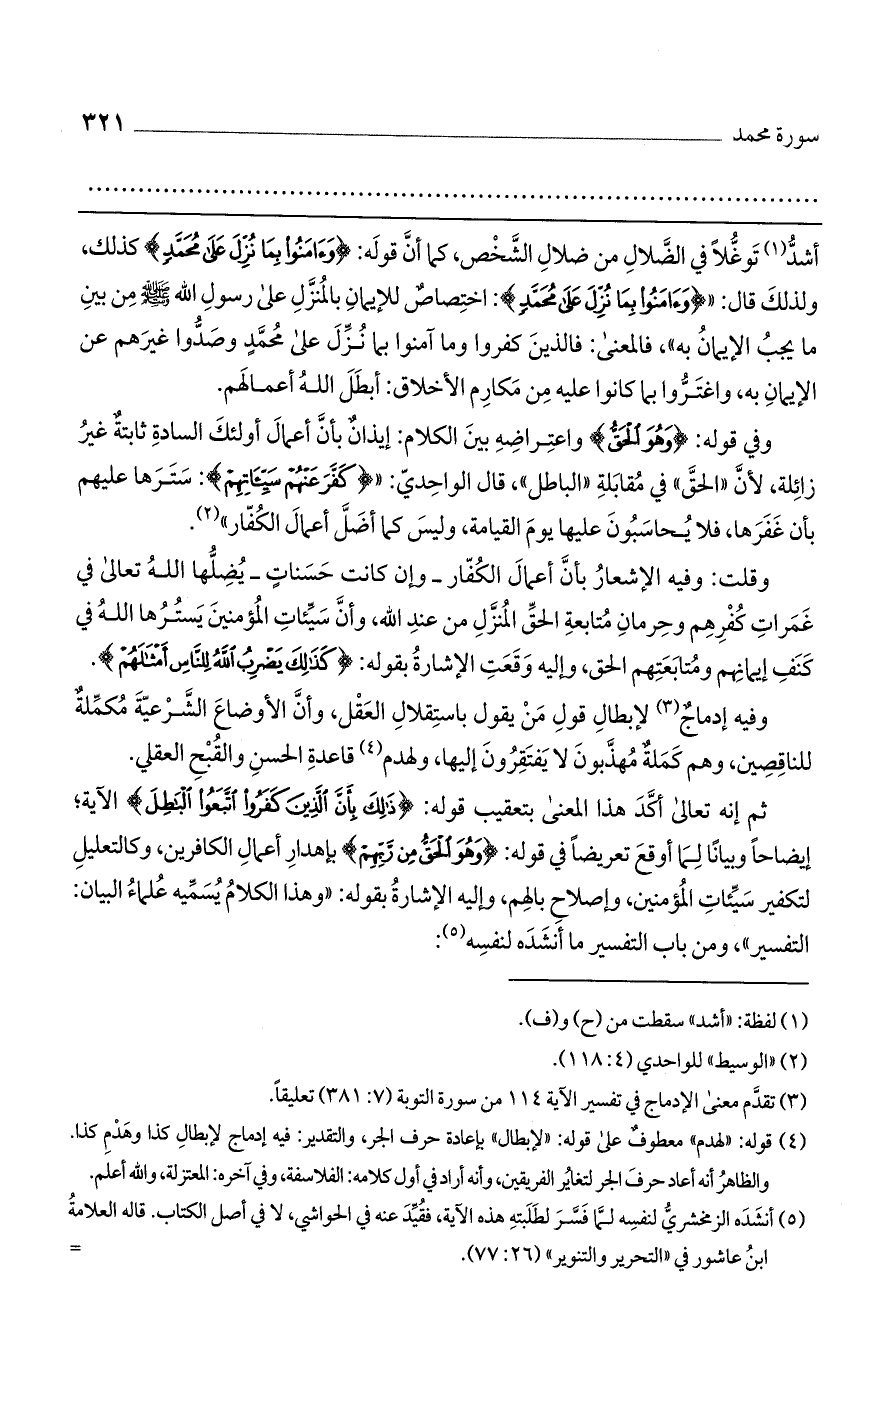 سورة محمد ــــــــــــ ٣٢١
................................................................................
أشدُّ(١) تَوغُّلاً في الضَّلال من ضلالِ الشَّخْص، كما أنَّ قولَه: ﴿وَءَامَنُوا۟ بِمَا نُزِّلَ عَلَىٰ مُحَمَّدٍ﴾ كذلك،
ولذلكَ قال: «﴿وَءَامَنُوا۟ بِمَا نُزِّلَ عَلَىٰ مُحَمَّدٍ﴾: اختِصاصٌ للإيمانِ بالمُنزَّلِ علىٰ رسولِ الله ﷺ مِن بينِ
ما يجبُ الإيمانُ به»، فالمعنىٰ: فالذينَ كفروا وما آمنوا بما نُزِّلَ علىٰ مُحمَّدٍ وصَدُّوا غيرَهم عن
الإيمانِ به، واغتَرُّوا بما كانوا عليه مِن مَكارِم الأخلاق: أبطَلَ اللهُ أعمالَهم.
وفي قوله: ﴿وَهُوَ ٱلْحَقُّ﴾ واعتِراضِهِ بينَ الكلام: إيذانٌ بأنَّ أعمالَ أولئكَ السادةِ ثابتةٌ غيرُ
زائِلة، لأنَّ «الحقَّ» في مُقابَلةِ «الباطل»، قال الواحِديّ: «﴿كَفَّرَ عَنْهُمْ سَيِّـَٔاتِهِمْ﴾: سَتَرَها عليهم
بأن غَفَرَها، فلا يُحاسَبُونَ عليها يومَ القيامة، وليسَ كما أضَلَّ أعمالَ الكُفّار»(٢).
وقلت: وفيه الإشعارُ بأنَّ أعمالَ الكُفّار ـ وإن كانت حَسَناتٍ ـ يُضِلُّها اللهُ تعالىٰ في
غَمَراتِ كُفْرِهِم وحِرمانِ مُتابعةِ الحقِّ المُنزَّلِ من عندِ الله، وأنَّ سَيِّئاتِ المُؤمنينَ يَستُرُها اللهُ في
كَنَفِ إيمانِهم ومُتابَعَتِهم الحق، وإليه وَقَعَتِ الإشارةُ بقوله: ﴿كَذَٰلِكَ يَضْرِبُ ٱللَّهُ لِلنَّاسِ أَمْثَٰلَهُمْ﴾.
وفيه إدماجٌ(٣) لإبطالِ قولِ مَنْ يقول باستِقلالِ العَقْل، وأنَّ الأوضاعَ الشَّرْعيّةَ مُكمِّلةٌ
للناقِصِين، وهم كَمَلةٌ مُهذَّبونَ لا يَفتَقِرُونَ إليها، ولهدم(٤) قاعدةِ الحسنِ والقُبْحِ العقلي.
ثم إنه تعالىٰ أكَّدَ هذا المعنىٰ بتعقيب قوله: ﴿ذَٰلِكَ بِأَنَّ ٱلَّذِينَ كَفَرُوا۟ ٱتَّبَعُوا۟ ٱلْبَٰطِلَ﴾ الآية؛
إيضاحاً وبيانًا لِما أوقعَ تعريضاً في قوله: ﴿وَهُوَ ٱلْحَقُّ مِن رَّبِّهِمْ﴾ بإهدارِ أعمالِ الكافرين، وكالتعليلِ
لتكفير سَيِّئاتِ المُؤمنين، وإصلاحِ بالهِم، وإليه الإشارةُ بقوله: «وهذا الكلامُ يُسَمِّيه عُلماءُ البيان:
التفسير»، ومن باب التفسير ما أنشَدَه لنفسِه(٥):
(١) لفظة: «أشد» سقطت من (ح) و(ف).
(٢) «الوسيط» للواحدي (٤: ١١٨).
(٣) تقدَّم معنىٰ الإدماج في تفسير الآية ١١٤ من سورة التوبة (٧: ٣٨١) تعليقاً.
(٤) قوله: «لهدم» معطوفٌ علىٰ قوله: «لإبطال» بإعادة حرف الجر، والتقدير: فيه إدماج لإبطالِ كذا وهَدْمِ كذا.
والظاهرُ أنه أعاد حرفَ الجر لتغايُر الفريقين، وأنه أراد في أول كلامه: الفلاسفة، وفي آخره: المعتزلة، والله أعلم.
(٥) أنشَدَه الزمخشريُّ لنفسِه لمَّا فَسَّرَ لطَلَبتِهِ هذه الآية، فقُيِّدَ عنه في الحواشي، لا في أصل الكتاب. قاله العلامةُ
ابنُ عاشور في «التحرير والتنوير» (٢٦: ٧٧). =